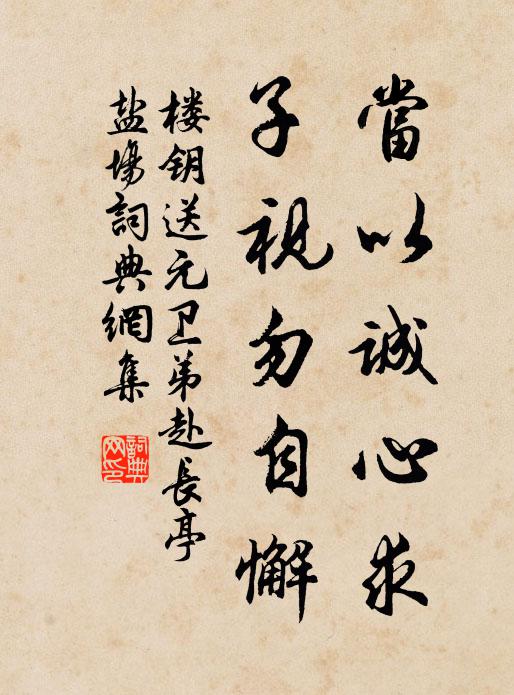 當以誠心求
子視勿自懈
楼钥送元卫弟赴長亭
盐場詞典網集
詞典
网印